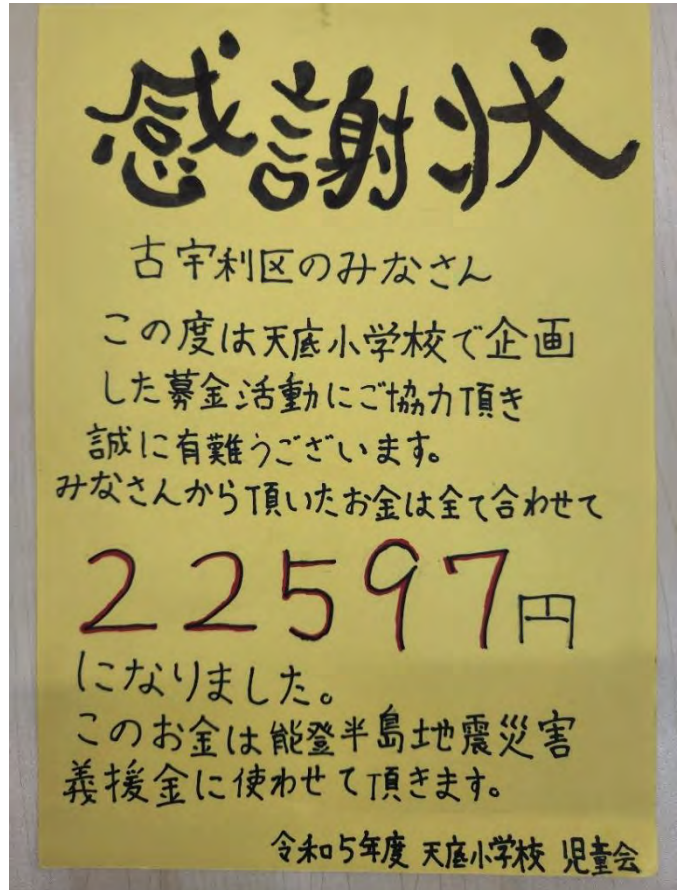 感謝状
古宇利区のみなさん
この度は天底小学校で企画
した募金活動にご協力頂き
誠に有難うございます。
みなさんから頂いたお金は全て合わせて
22597円
になりました。
このお金は能登半島地震災害
義援金に使わせて頂きます。
令和5年度 天底小学校 児童会